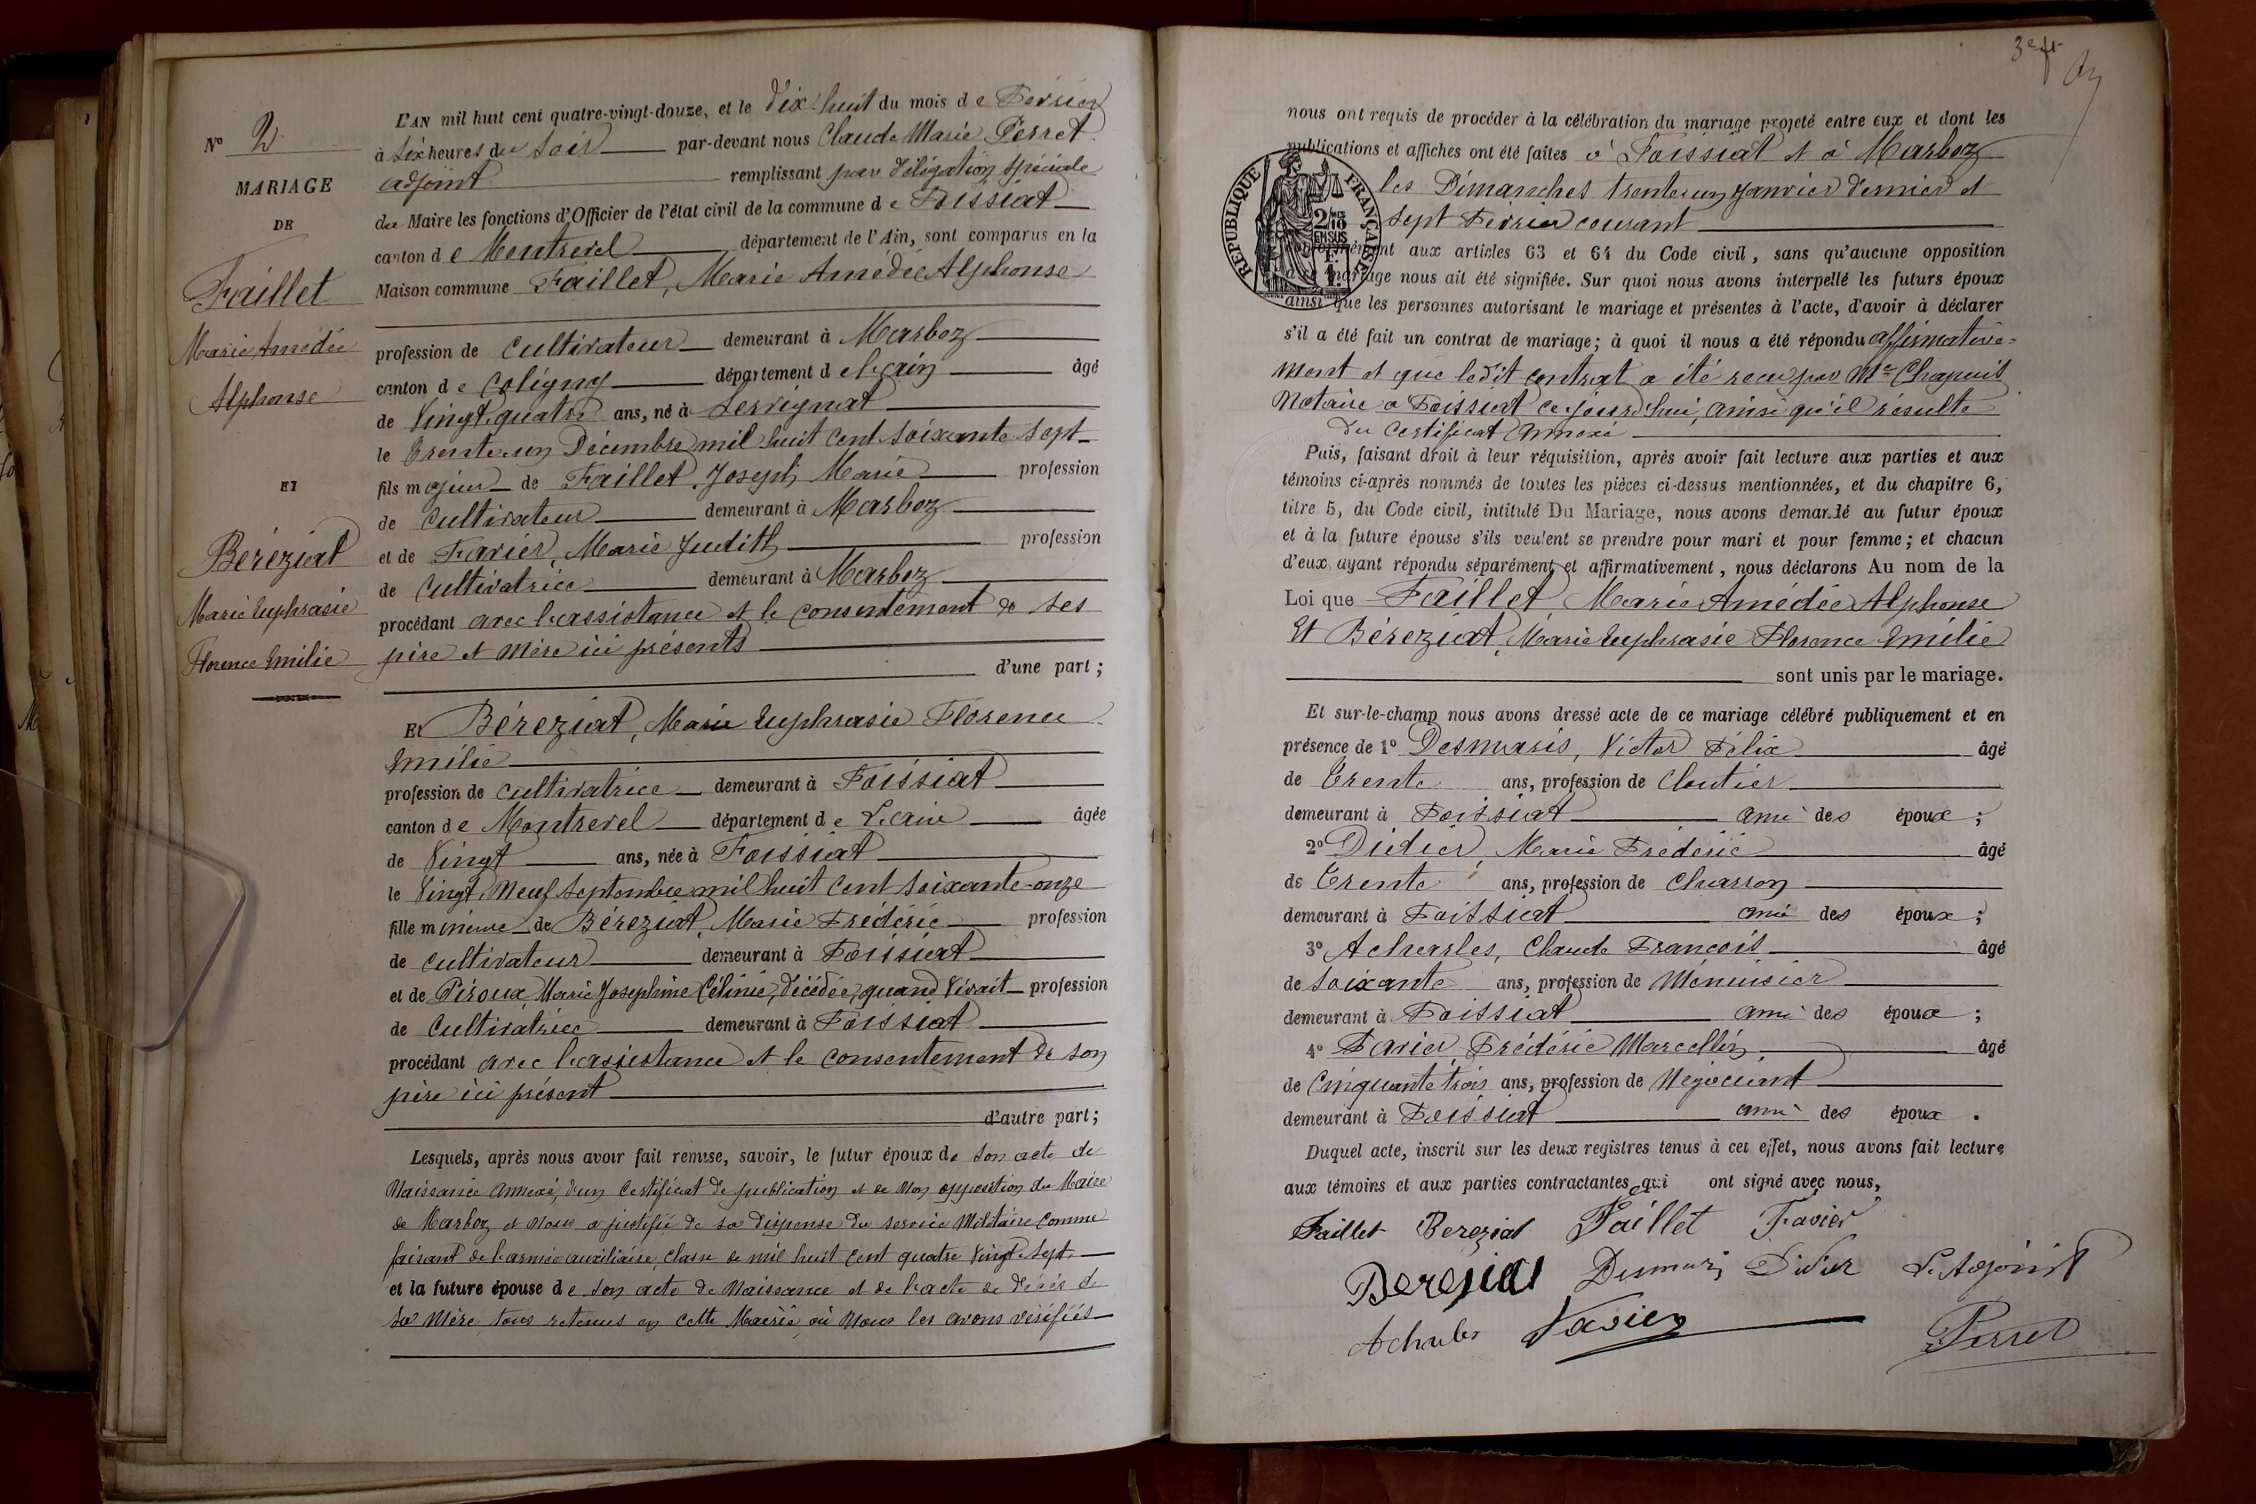 N° 2
MARIAGE
DE
Faillet
Marie Amédée
Alphonse
ET
Béréziat
Marie Euphrasie
Florence Emilie
L'AN mil huit cent quatre-vingt-douze, et le dix huit du mois de Février
à Six heures du Soir par-devant nous Claude Marie Perret
adjoint remplissant par délégation spéciale
du Maire les fonctions d'Officier de l'état civil de la commune de Foissiat
canton de Montrevel département de l'Ain, sont comparus en la
Maison commune Faillet, Marie Amédée Alphonse
profession de Cultivateur demeurant à Marboz
canton de Coligny département de l'ain âgé
de Vingt quatre ans, né à Servignat
le trente un Décembre mil huit cent soixante sept
fils majeur de Faillet Joseph Marie profession
de Cultivateur demeurant à Marboz
et de Favier, Marie Judith profession
de Cultivatrice demeurant à Marboz
procédant avec l'assistance et le consentement de ses
père et mère ici présents
d'une part ;
Et Béréziat, Marie Euphrasie Florence
Emilie
profession de cultivatrice demeurant à Foissiat
canton de Montrevel département de L'ain âgée
de Vingt ans, née à Foissiat
le Vingt Neuf Septembre mil huit cent soixante-onze
fille mineure de Béréziat, Marie Frédéric profession
de cultivateur demeurant à Foissiat
et de Piroux, Marie Josephine Célinie, décédée, quand Vivait profession
de Cultivatrice demeurant à Foissiat
procédant avec l'assistance et le consentement de son
père ici présent
d'autre part ;
Lesquels, après nous avoir fait remise, savoir, le futur époux de son acte de
Naissance annexé, d'un certificat de publication et de non opposition du Maire
de Marboz et nous a justifié de sa dispense du service Militaire comme
faisant de l'armée auxiliaire, classe de mil huit cent quatre Vingt Sept
et la future épouse de son acte de Naissance et de l'acte de décès de
sa Mère, tous retenus en cette Mairie où Nous les avons vérifiés
3e ft
nous ont requis de procéder à la célébration du mariage projeté entre eux et dont les
publications et affiches ont été faites à Foissiat et à Marboz
les Dimanches trente un Janvier dernier et
Sept Février courant
RÉPUBLIQUE FRANÇAISE
2/10 EN SUS
conformément aux articles 63 et 64 du Code civil, sans qu'aucune opposition
audit mariage nous ait été signifiée. Sur quoi nous avons interpellé les futurs époux
ainsi que les personnes autorisant le mariage et présentes à l'acte, d'avoir à déclarer
s'il a été fait un contrat de mariage ; à quoi il nous a été répondu affirmative=
ment et que ledit contrat a été recu par Me Chapuis
Notaire à Foissiat ce jourd'hui, ainsi qu'il résulte
du Certificat annexé
Puis, faisant droit à leur réquisition, après avoir fait lecture aux parties et aux
témoins ci-après nommés de toutes les pièces ci-dessus mentionnées, et du chapitre 6,
titre 5, du Code civil, intitulé Du Mariage, nous avons demandé au futur époux
et à la future épouse s'ils veulent se prendre pour mari et pour femme ; et chacun
d'eux ayant répondu séparément et affirmativement, nous déclarons Au nom de la
Loi que Faillet Marie Amédée Alphonse
Et Béréziat, Marie Euphrasie Florence Emilie
sont unis par le mariage.
Et sur-le-champ nous avons dressé acte de ce mariage célébré publiquement et en
présence de 1° Desmaris, Victor Félix âgé
de trente ans, profession de Cloutier
demeurant à Foissiat ami des époux ;
2° Didier, Marie Frédéric âgé
de trente ans, profession de Charron
demeurant à Foissiat ami des époux ;
3° Acharles, Claude Francois âgé
de soixante ans, profession de Menuisier
demeurant à Foissiat ami des époux ;
4° Favier Frédéric Marcellin âgé
de Cinquante trois ans, profession de Négociant
demeurant à Foissiat ami des époux .
Duquel acte, inscrit sur les deux registres tenus à cet effet, nous avons fait lecture
aux témoins et aux parties contractantes qui ont signé avec nous,
Faillet Bereziat Faillet Favier
Bereziat Desmaris Didier L'Adjoint
Acharles Favier Perret